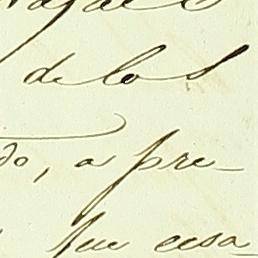 de los
do, a pre-
que cesa